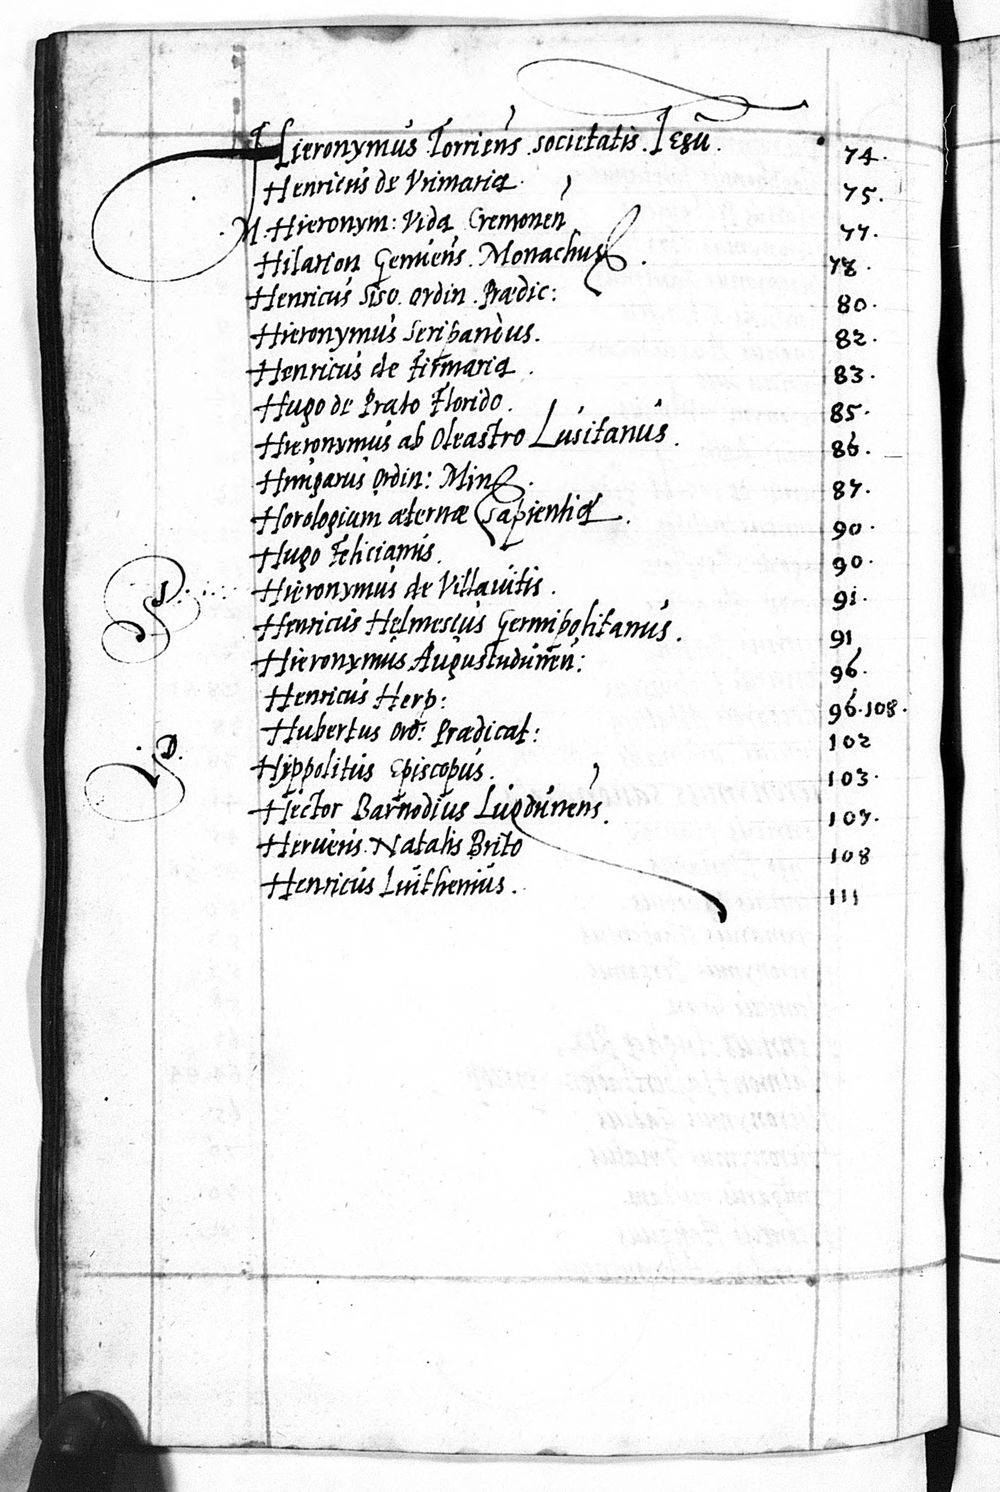 Hieronymus Torriens societatis Iesu . 74.
Henricus de Vrimaria . 75.
M. Hieronym: Vida Cremonen 77.
Hilarion Genuens. Monachus . 78.
Henricus Suso. ordin. Prædic: 80.
Hieronymus Scribandus. 82.
Henricus de Firmaria . 83.
Hugo de Prato Florido . 85.
Hieronymus ab Oleastro Lusitanus . 86.
Hungarus Ordin: Min . 87.
Horologium æternæ Sapientiæ . 90.
Hugo Felicianus. 90.
S. Hieronymus de Villauitis . 91.
Henricus Helmesius Germipolitanus . 91
Hieronymus Augustudunen: 96.
Henricus Herp: 96.108.
Hubertus Ord: Prædicat: 102
D. Hyppolitus Episcopus. 103.
Hector Barnodius Lugdunens. 107.
Herueus Natalis Brito 108
Henricus Luithenius . 111